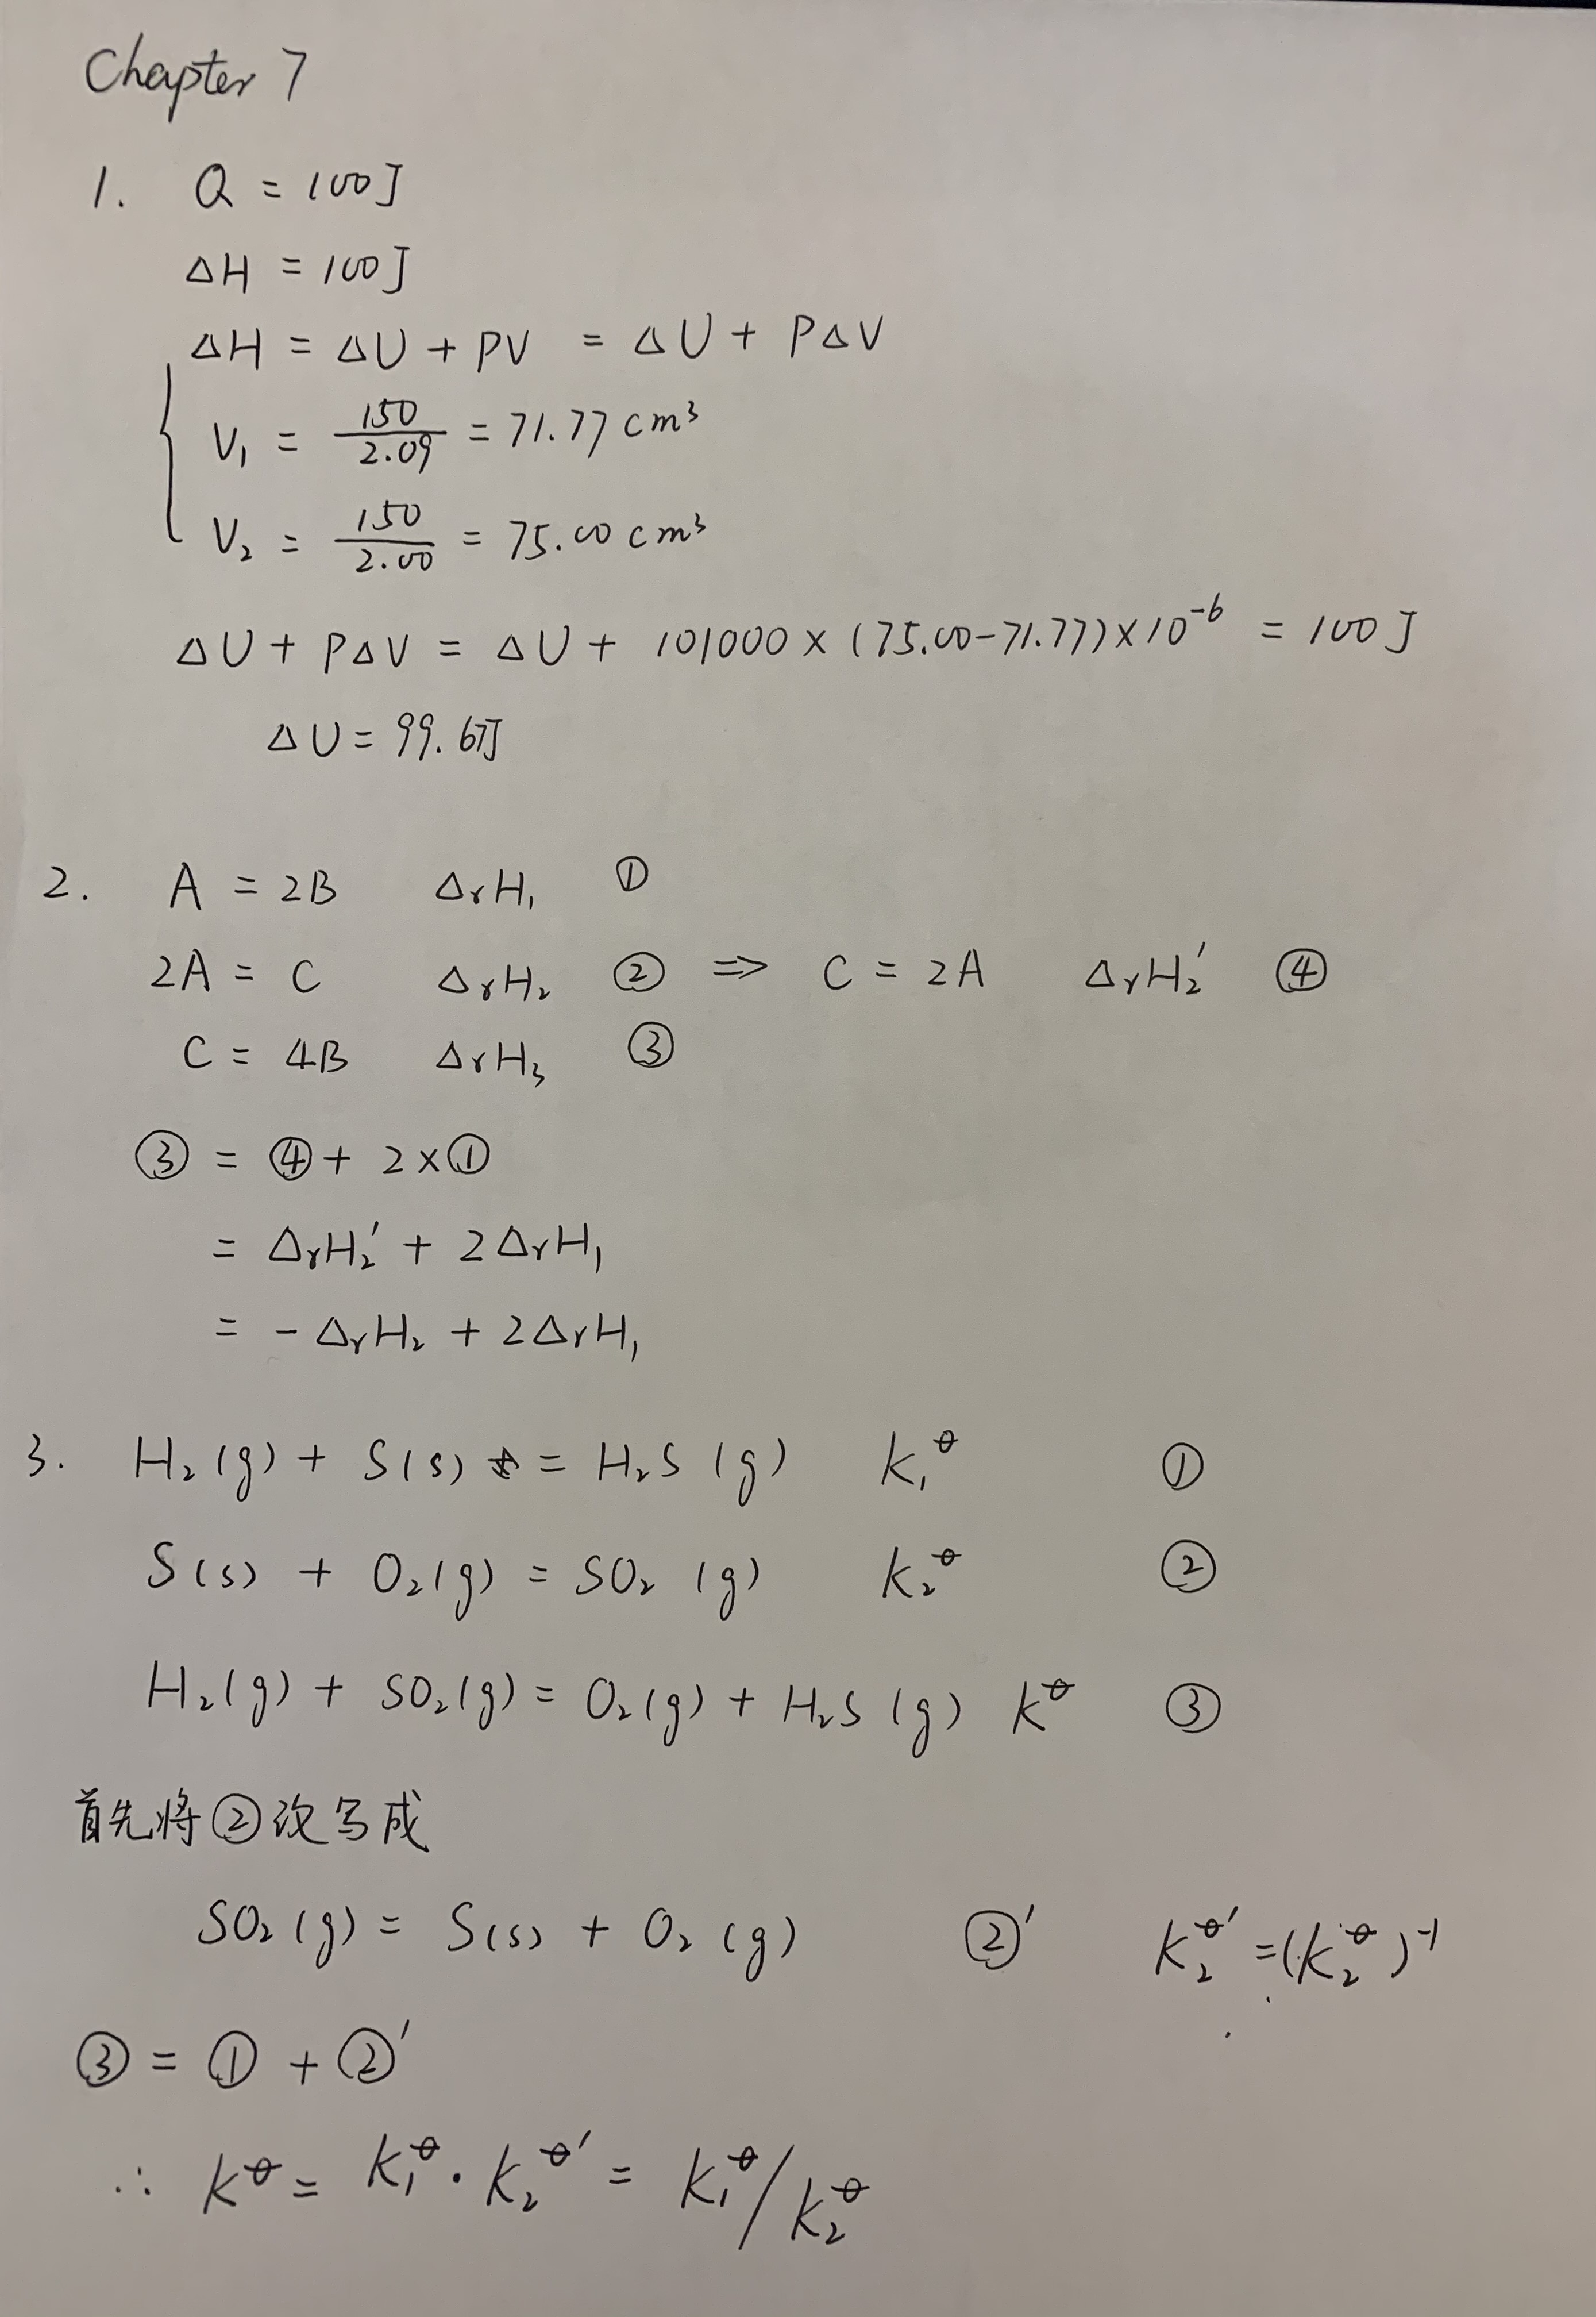 Chapter 7
1. Q = 100J
ΔH = 100J
ΔH = ΔU + PV = ΔU + PΔV
V₁ = 150/2.09 = 71.77 cm³
V₂ = 150/2.00 = 75.00 cm³
ΔU + PΔV = ΔU + 101000 × (75.00-71.77)×10⁻⁶ = 100 J
ΔU = 99.67J
2. A = 2B ΔrH₁ ①
2A = C ΔrH₂ ② ⇒ C = 2A ΔrH₂′ ④
C = 4B ΔrH₃ ③
③ = ④ + 2×①
= ΔrH₂′ + 2ΔrH₁
= - ΔrH₂ + 2ΔrH₁
3. H₂(g) + S(s) = H₂S (g) K₁^θ ①
S(s) + O₂(g) = SO₂ (g) K₂^θ ②
H₂(g) + SO₂(g) = O₂(g) + H₂S (g) K^θ ③
首先将②改写成
SO₂(g) = S(s) + O₂(g) ②′ K₂^θ′ = (K₂^θ)⁻¹
③ = ① + ②′
∴ K^θ = K₁^θ · K₂^θ′ = K₁^θ/K₂^θ